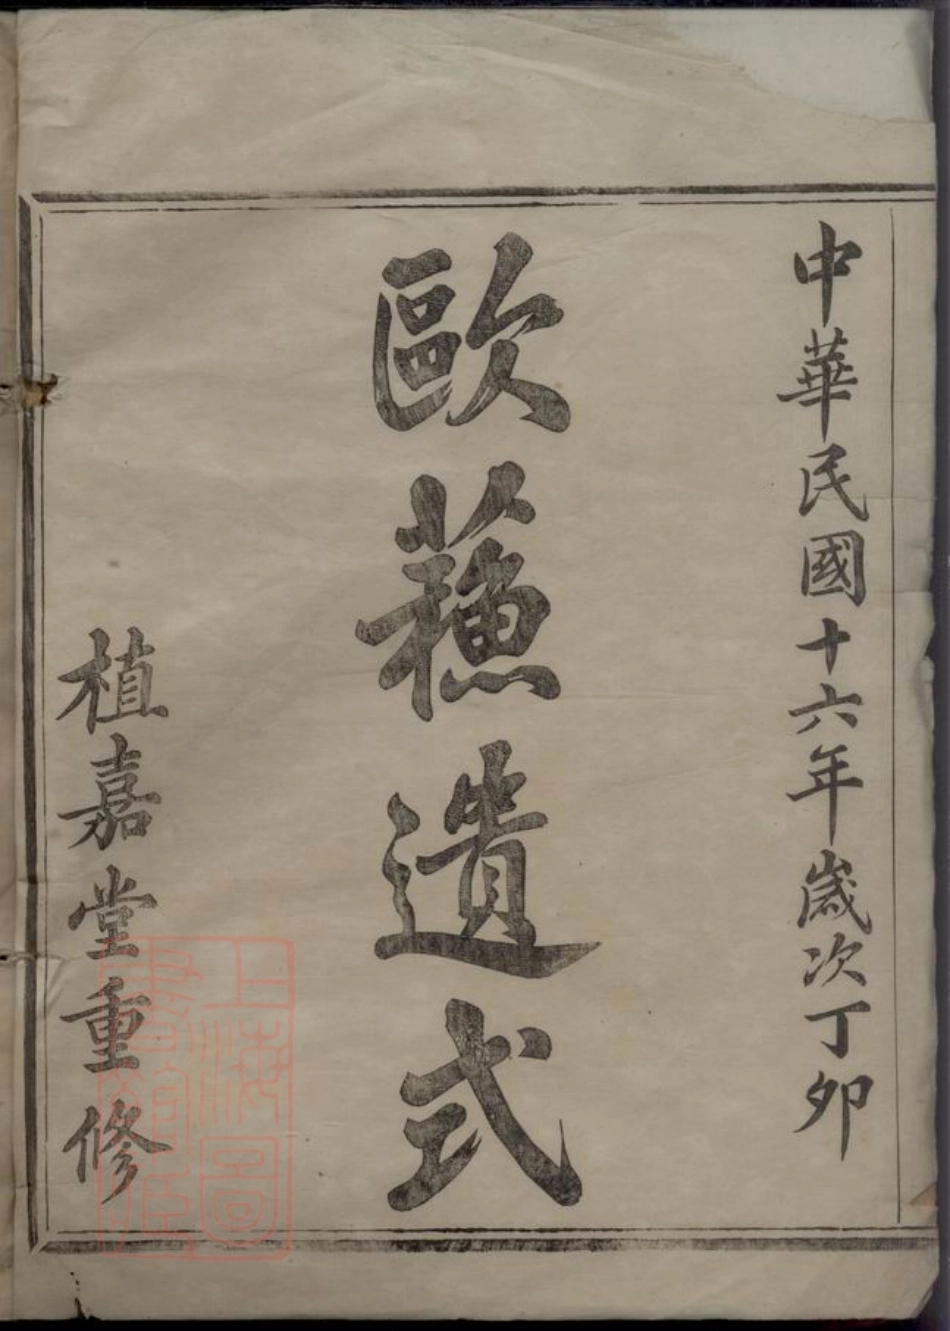 中華民國十六年歲次丁卯
歐蘓遺式
植嘉堂重修
上海圖
書館藏